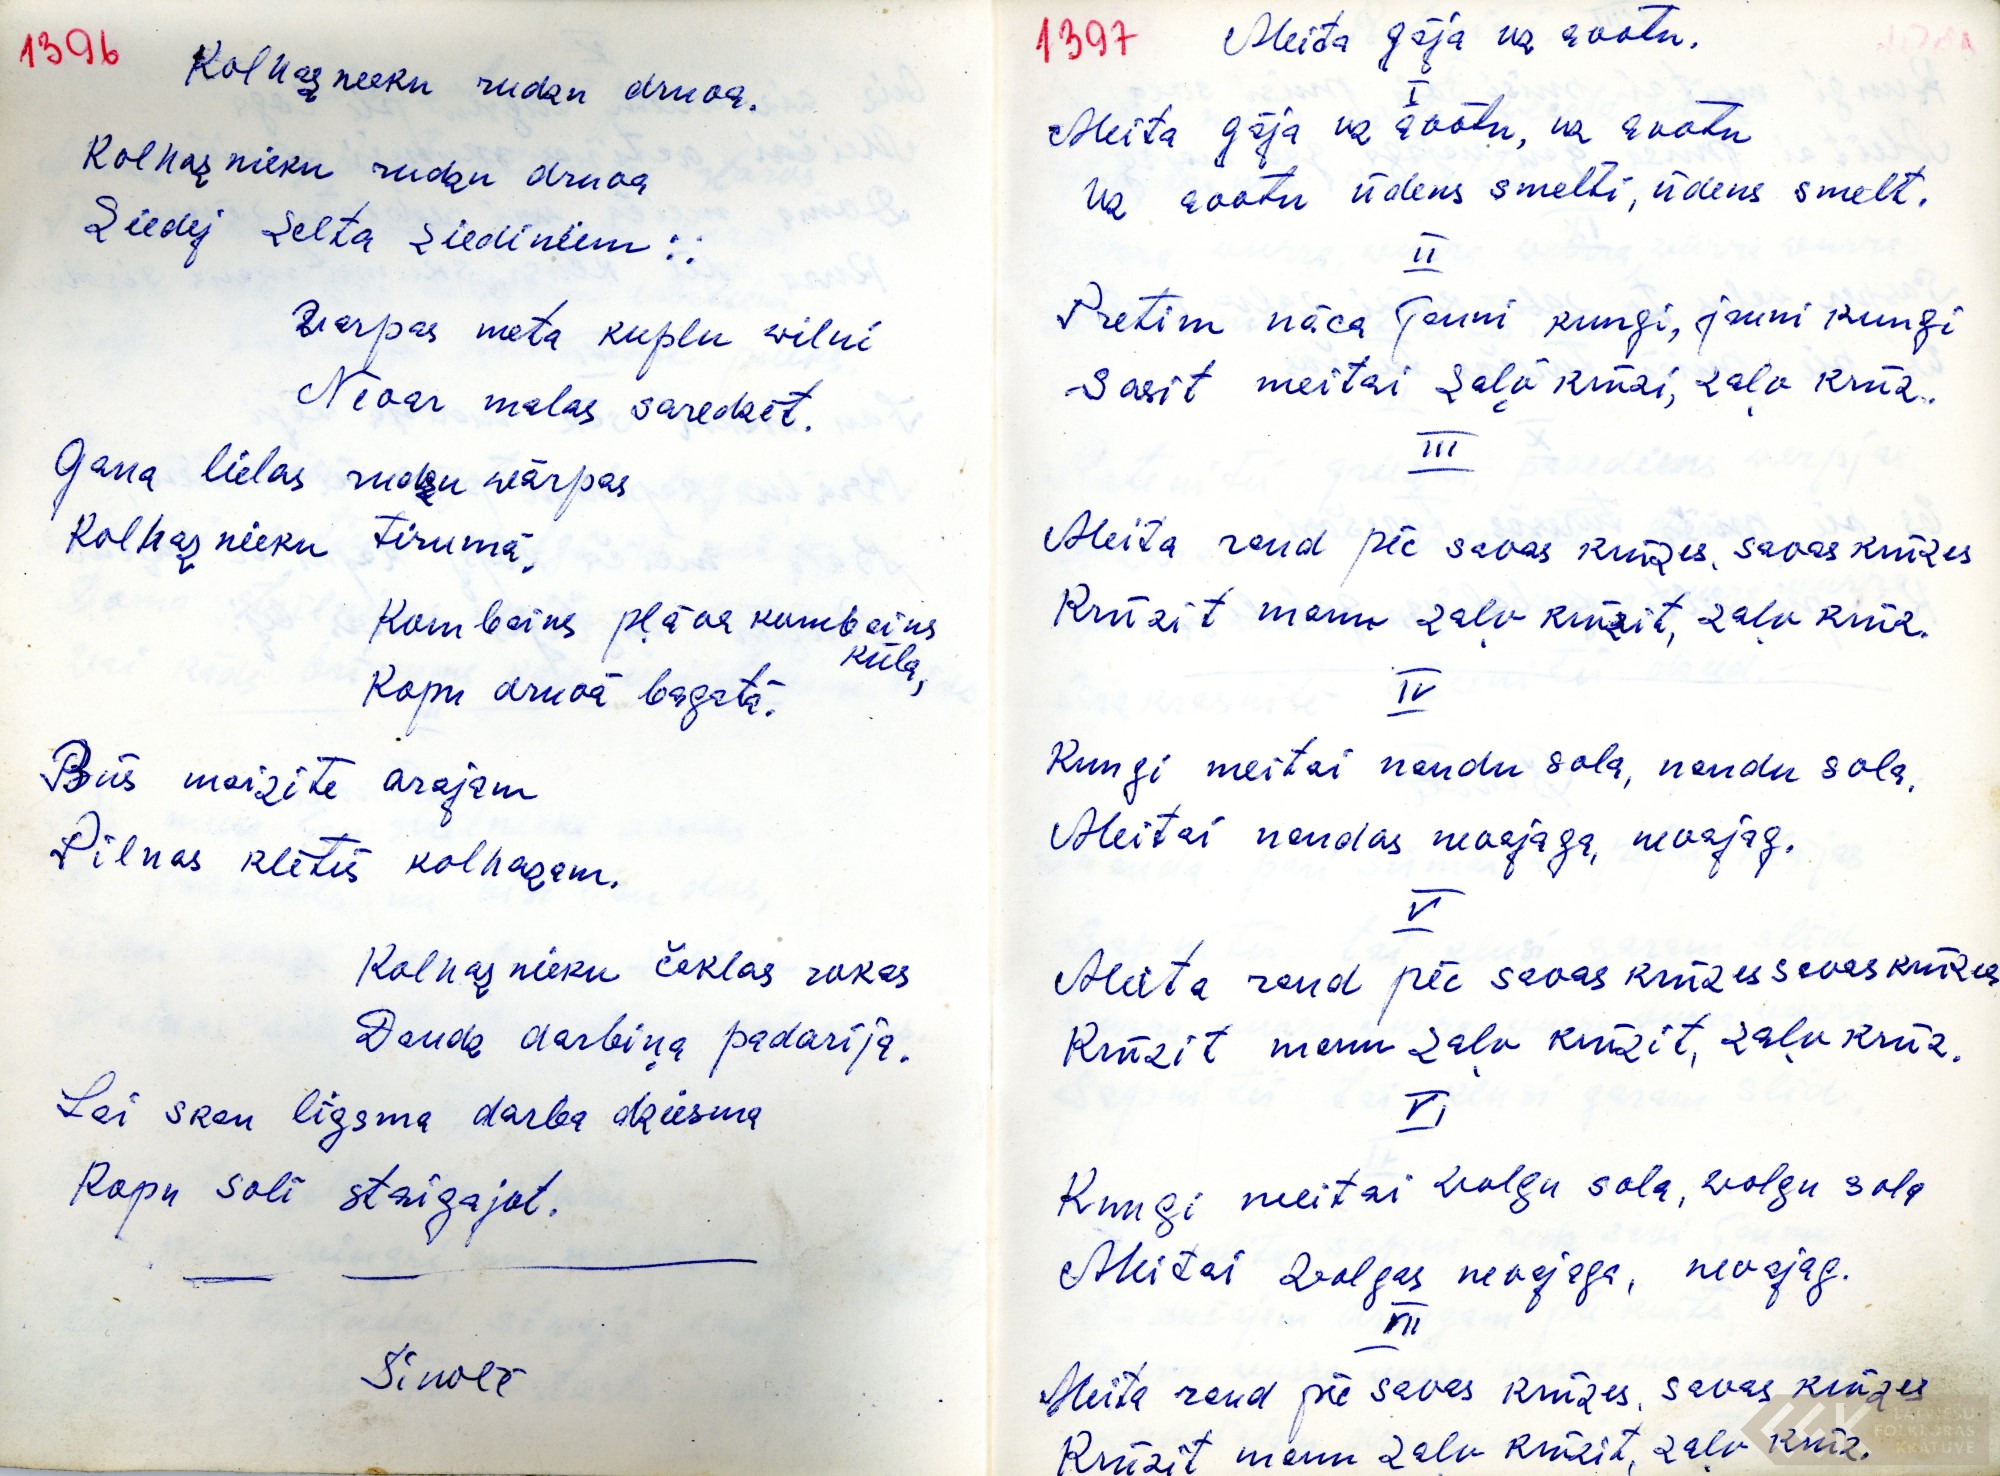 1396
Kolhaznieku rudzu druva.
Kolhaznieku rudzu druva
Ziedēj zelta ziediniem :.:
Varpas meta kuplu vilni
Nevar malas saredzēt.
Gana lielas rudzu vārpas
Kolhaznieku tirumā,
Kombains pļāva kombains
kūla,
Kopu druvā bagatā.
Būs maizite arajam
Pilnas klētis kolhazam.
Kolhaznieku čaklas rokas
Daudz darbiņa padarija.
Lai skan līgsma darba dziesma
Kopu soli staigajot.
Sinolē
1397
Meita gāja uz avotu.
I
Meita gāja uz avotu, uz avotu
Uz avotu ūdens smelti, ūdens smelt.
II
Pretim nāca jauni kungi, jauni kungi
Sasit meitai zaļo krūzi, zaļo krūz.
III
Meita raud pēc savas krūzes, savas krūzes
Krūzit manu zaļo krūzit, zaļo krūz.
IV
Kungi meitai naudu sola, naudu sola,
Meitai naudas nevajaga, nevajag.
V
Meita raud pēc savas krūzes savas krūzes
Krūzit manu zaļo krūzit, zaļo krūz.
VI
Kungi meitai volgu sola, volgu sola
Meitai volgas nevajaga, nevajag.
VII
Meita raud pēc savas krūzes, savas krūzes
Krūzit manu zaļo krūzit, zaļo krūz.
LATVIEŠU
FOLKLORAS
KRĀTUVE